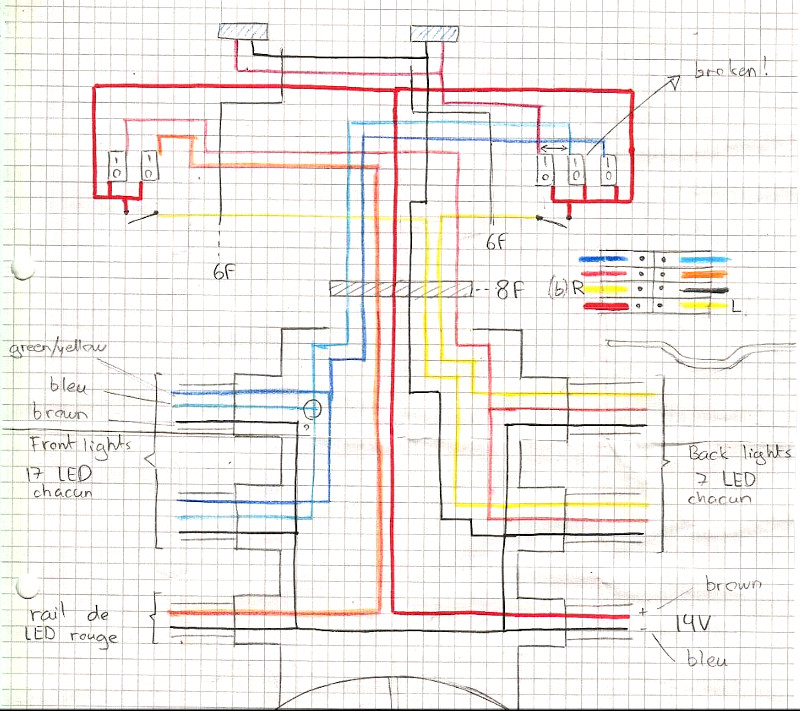 broken!
I
O
I
O
I
O
I
O
I
O
6F
6F
8F
(b) R
L
green/yellow
bleu
brown
?
Front lights
17 LED
chacun
Back lights
7 LED
chacun
rail de
LED rouge
brown
+
14V
-
bleu